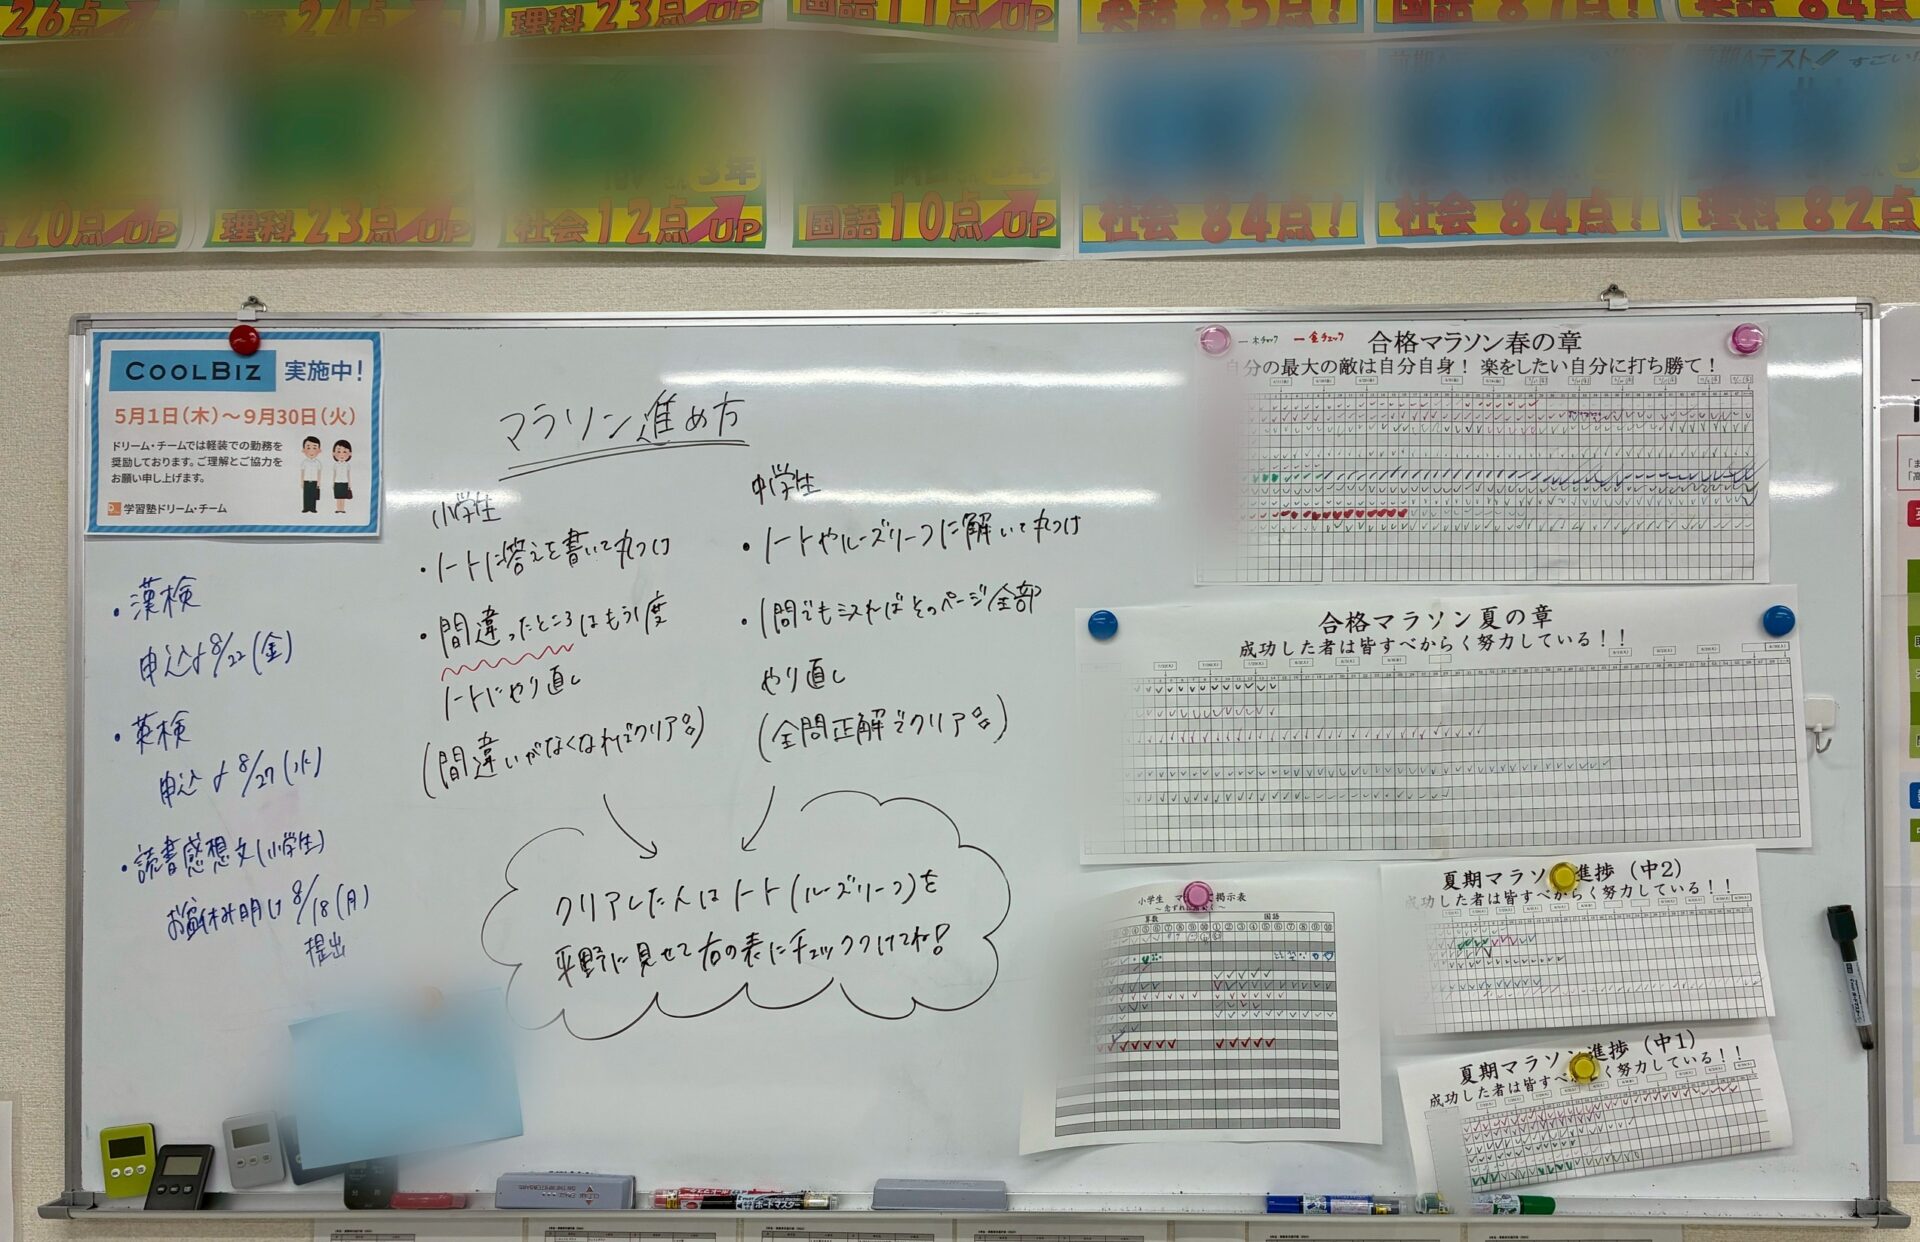 26点UP
24点UP
理科23点UP
国語11点UP
英語85点!
国語87点!
英語84点
テスト!! すごい!!
3年
20点UP
理科23点UP
社会12点UP
国語10点UP
社会84点!
社会84点!
理科82点
COOLBIZ 実施中!
5月1日(木)~9月30日(火)
ドリーム・チームでは軽装での勤務を
奨励しております。ご理解とご協力を
お願い申し上げます。
学習塾ドリーム・チーム
・漢検
申込〆8/22(金)
・英検
申込〆8/27(水)
・読書感想文(小学生)
お盆休み明け8/18(月)
提出
マラソン進め方
小学生
・ノートに答えを書いて丸つけ
・間違ったところはもう1度
ノートにやり直し
(間違いがなくなればクリア)
中学生
・ノートやルーズリーフに解いて丸つけ
・1問でもミスればそのページ全部
やり直し
(全問正解でクリア)
クリアした人はノート(ルーズリーフ)を
平野に見せて右の表にチェックつけてね!
合格マラソン春の章
自分の最大の敵は自分自身! 楽をしたい自分に打ち勝て!
合格マラソン夏の章
成功した者は皆すべからく努力している!!
小学生
掲示表
算数
国語
夏期マラソン進捗(中2)
成功した者は皆すべからく努力している!!
夏期マラソン進捗(中1)
成功した者は皆すべからく努力している!!
ボードマスター